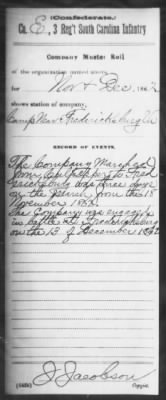 (Confederate.)
Co. E, 3 Reg't South Carolina Infantry
Company Muster Roll
of the organization named above,
for Nov & Dec, 1862
shows station of company,
Camp Near Fredericksburg Va
RECORD OF EVENTS.
The Company Marched
from Culpepper to Fred
ericksburg was three days
on the March from the 18
November 1862
The Company was engaged
in battle at Fredericksburg
on the 13 of December 1862
J. Jacobson
Copyist.